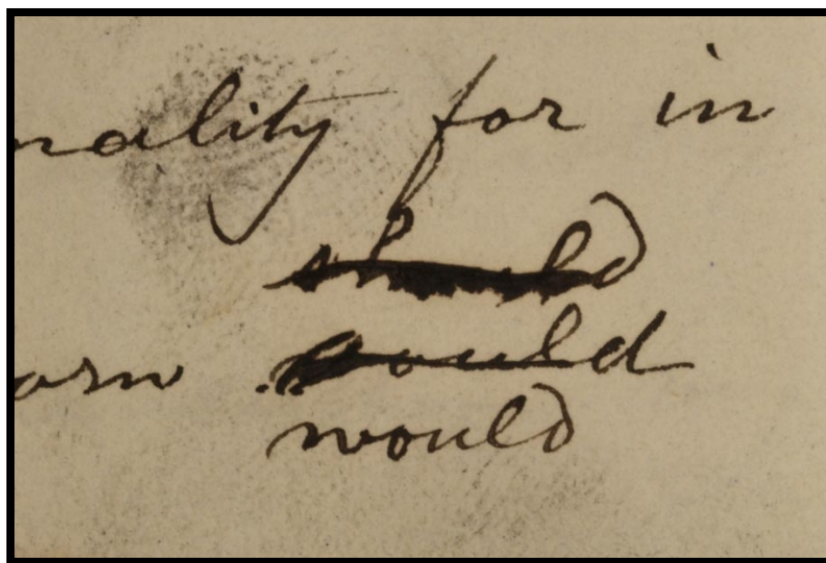 nality for in
should
orn would
would